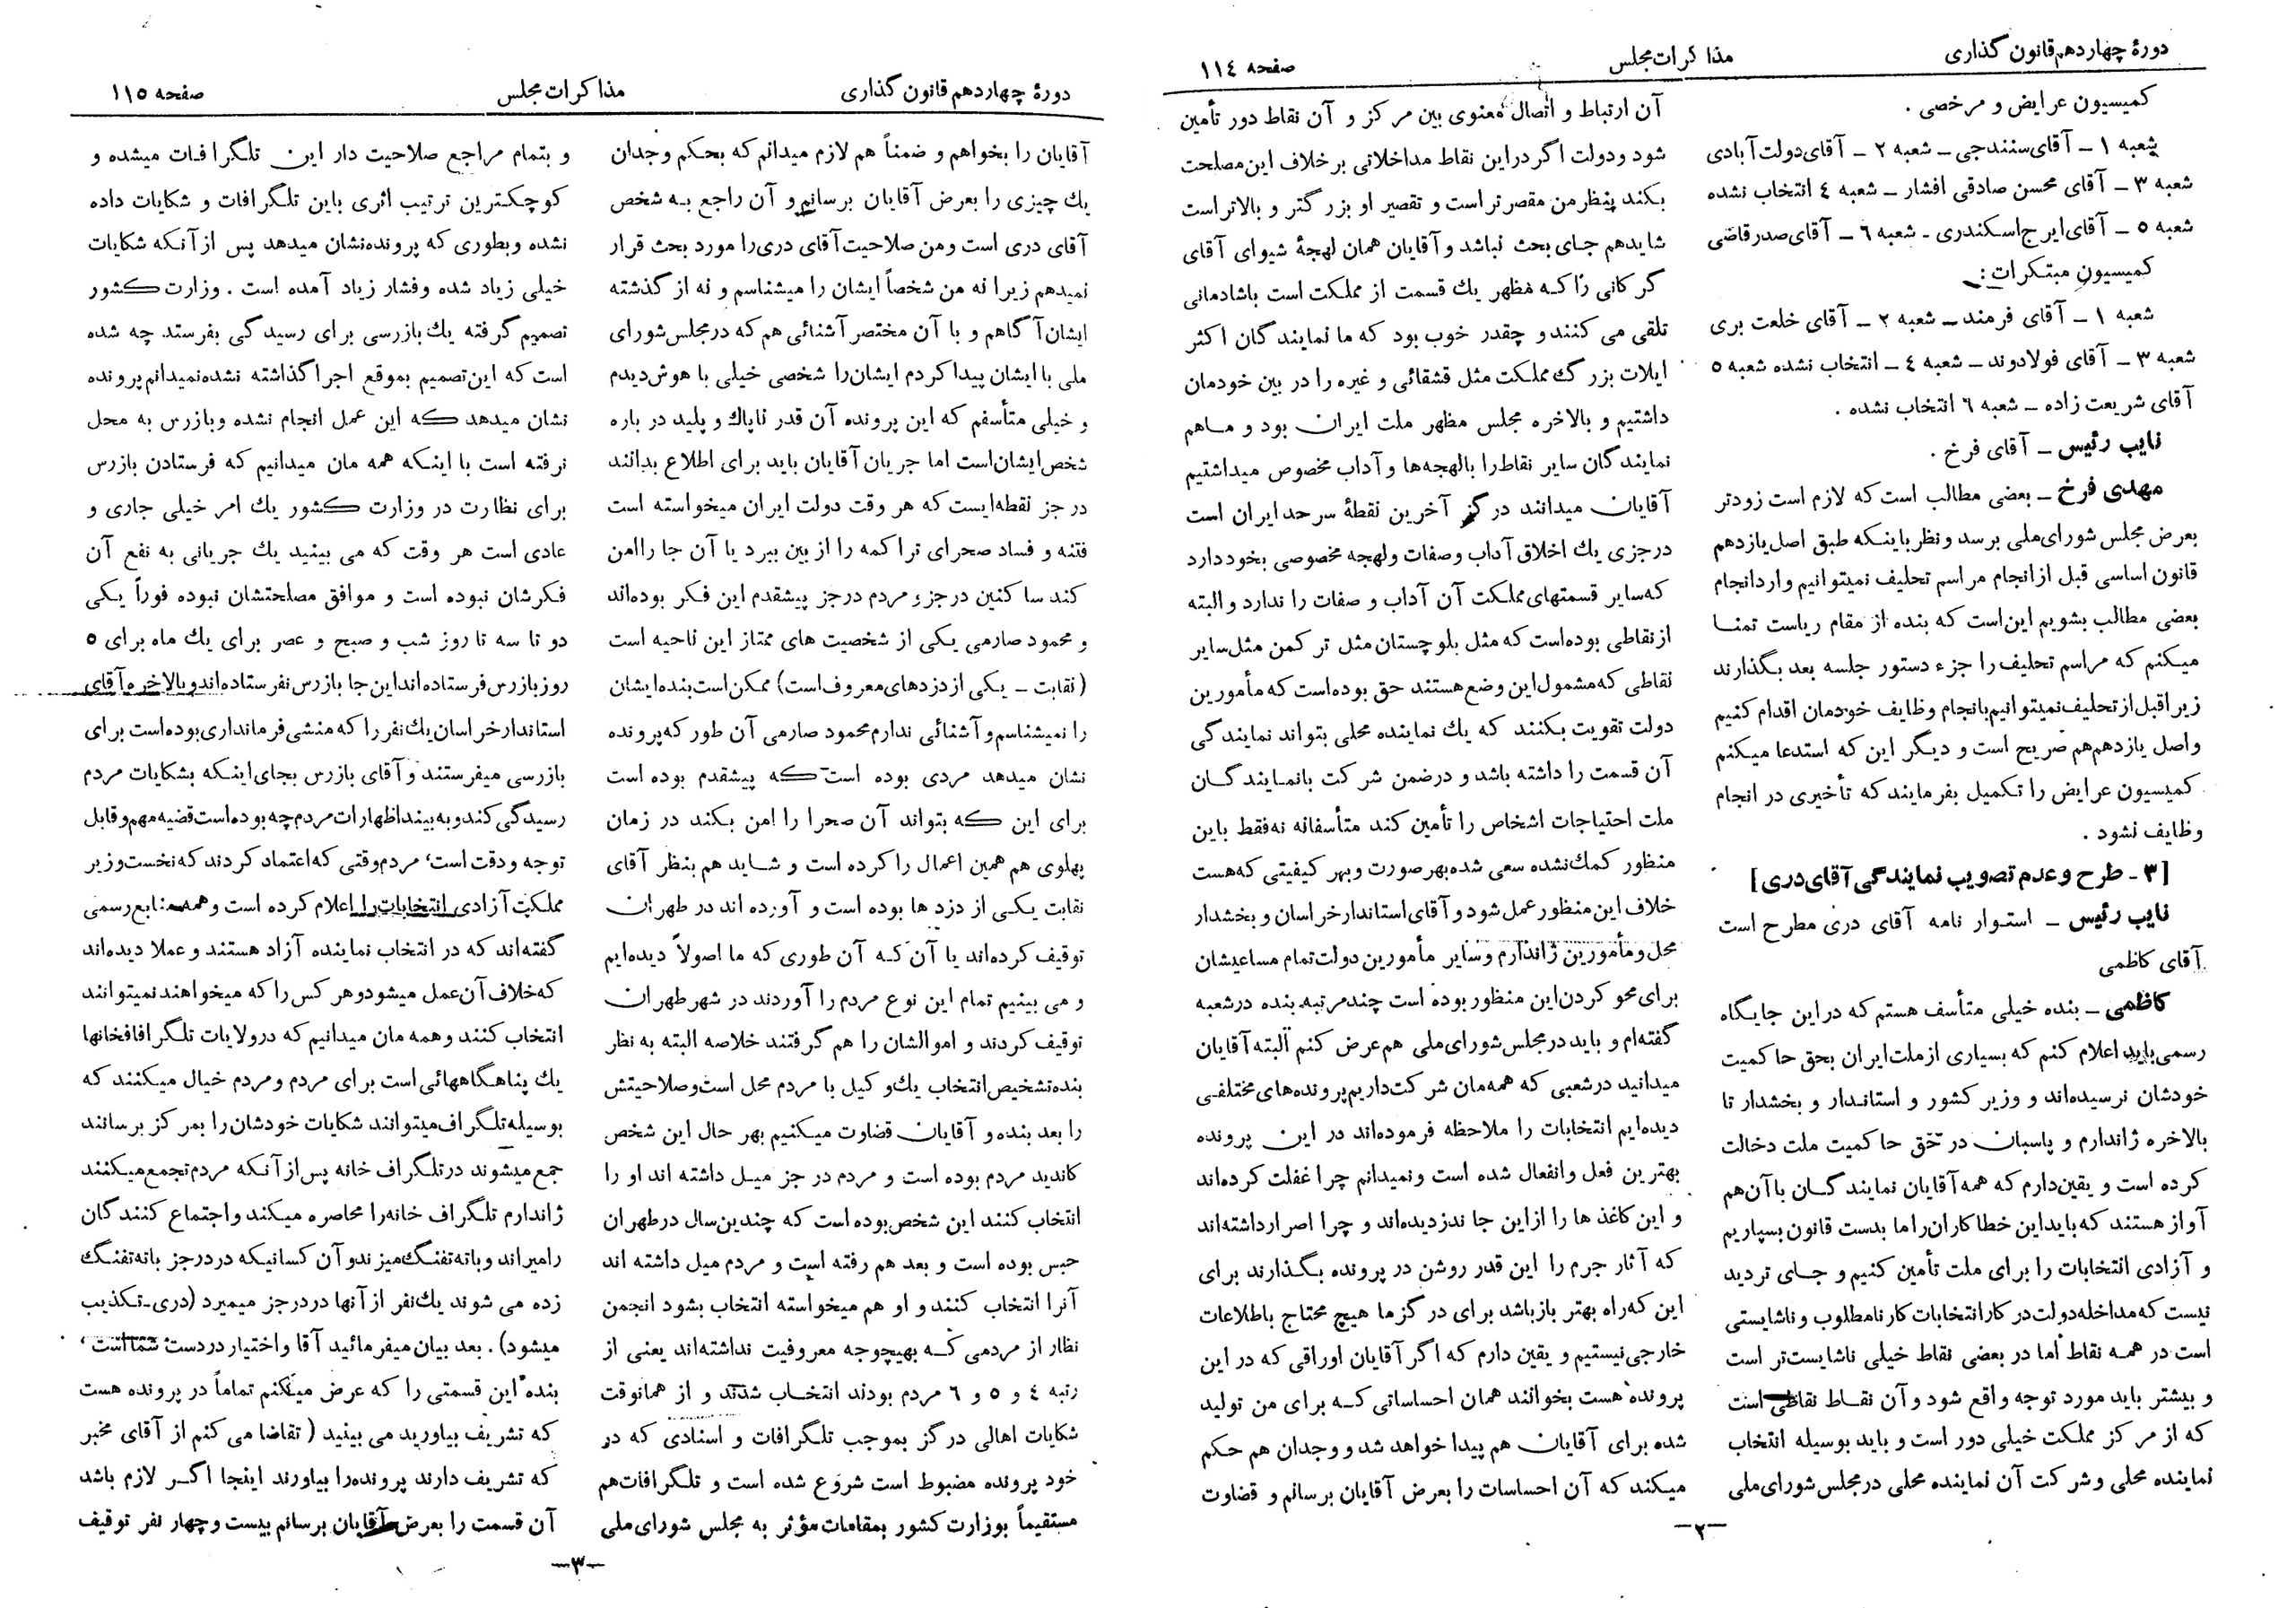 دورهٔ چهاردهم قانون گذاری
مذاکرات مجلس
صفحه ۱۱٤
کمیسیون عرایض و مرخصی .
شعبه ۱ ـ آقای سنندجی ـ شعبه ۲ ـ آقای دولت آبادی
شعبه ۳ ـ آقای محسن صادقی افشار ـ شعبه ٤ انتخاب نشده
شعبه ٥ ـ آقای ایرج اسکندری ـ شعبه ٦ ـ آقای صدر قاضی
کمیسیون مبتکرات :
شعبه ۱ ـ آقای فرمند ـ شعبه ۲ ـ آقای خلعت بری
شعبه ۳ ـ آقای فولادوند ـ شعبه ٤ ـ انتخاب نشده شعبه ٥
آقای شریعت زاده ـ شعبه ٦ انتخاب نشده .
نایب رئیس ـ آقای فرخ .
مهدی فرخ ـ بعضی مطالب است که لازم است زودتر
بعرض مجلس شورای ملی برسد و نظر باینکه طبق اصل یازدهم
قانون اساسی قبل از انجام مراسم تحلیف نمیتوانیم وارد انجام
بعضی مطالب بشویم این است که بنده از مقام ریاست تمنا
میکنم که مراسم تحلیف را جزء دستور جلسه بعد بگذارند
زیرا قبل از تحلیف نمیتوانیم بانجام وظایف خودمان اقدام کنیم
و اصل یازدهم هم صریح است و دیگر این که استدعا میکنم
کمیسیون عرایض را تکمیل بفرمایند که تأخیری در انجام
وظایف نشود .
[ ۳ ـ طرح و عدم تصویب نمایندگی آقای دری ]
نایب رئیس ـ استوار نامه آقای دری مطرح است
آقای کاظمی
کاظمی ـ بنده خیلی متأسف هستم که در این جایگاه
رسمی باید اعلام کنم که بسیاری از ملت ایران بحق حاکمیت
خودشان نرسیده‌اند و وزیر کشور و استاندار و بخشدار تا
بالاخره ژاندارم و پاسبان در حق حاکمیت ملت دخالت
کرده است و یقین دارم که همه آقایان نمایندگان با آن هم
آواز هستند که باید این خطاکاران را ما بدست قانون بسپاریم
و آزادی انتخابات را برای ملت تأمین کنیم و جای تردید
نیست که مداخله دولت در کار انتخابات کار نامطلوب و ناشایستی
است در همه نقاط اما در بعضی نقاط خیلی ناشایست‌تر است
و بیشتر باید مورد توجه واقع شود و آن نقاط نقاطی است
که از مرکز مملکت خیلی دور است و باید بوسیله انتخاب
نماینده محلی و شرکت آن نماینده محلی در مجلس شورای ملی
آن ارتباط و اتصال معنوی بین مرکز و آن نقاط دور تأمین
شود و دولت اگر در این نقاط مداخلاتی بر خلاف این مصلحت
بکند بنظر من مقصرتر است و تقصیر او بزرگتر و بالاتر است
شاید هم جای بحث نباشد و آقایان همان لهجهٔ شیوای آقای
گرکانی را که مظهر یك قسمت از مملکت است باشادمانی
تلقی می کنند و چقدر خوب بود که ما نمایندگان اکثر
ایلات بزرگ مملکت مثل قشقائی و غیره را در بین خودمان
داشتیم و بالاخره مجلس مظهر ملت ایران بود و ما هم
نمایندگان سایر نقاط را بالهجه‌ها و آداب مخصوص میداشتیم
آقایان میدانند درگز آخرین نقطهٔ سرحد ایران است
درجزی یك اخلاق آداب و صفات و لهجه مخصوصی بخود دارد
که سایر قسمتهای مملکت آن آداب و صفات را ندارد و البته
از نقاطی بوده است که مثل بلوچستان مثل ترکمن مثل سایر
نقاطی که مشمول این وضع هستند حق بوده است که مأمورین
دولت تقویت بکنند که یك نماینده محلی بتواند نمایندگی
آن قسمت را داشته باشد و در ضمن شرکت بانمایندگان
ملت احتیاجات اشخاص را تأمین کند متأسفانه نه فقط باین
منظور کمك نشده سعی شده بهر صورت و بهر کیفیتی که هست
خلاف این منظور عمل شود و آقای استاندار خراسان و بخشدار
محل و مأمورین ژاندارم و سایر مأمورین دولت تمام مساعیشان
برای محو کردن این منظور بوده است چند مرتبه بنده در شعبه
گفته‌ام و باید در مجلس شورای ملی هم عرض کنم البته آقایان
میدانید در شعبی که همه مان شرکت داریم پرونده‌های مختلفی
دیده‌ایم انتخابات را ملاحظه فرموده‌اند در این پرونده
بهترین فعل و انفعال شده است و نمیدانم چرا غفلت کرده‌اند
و این کاغذ ها را از این جا ندزدیده‌اند و چرا اصرار داشته‌اند
که آثار جرم را این قدر روشن در پرونده بگذارند برای
این که راه بهتر باز باشد برای درگز ما هیچ محتاج باطلاعات
خارجی نیستیم و یقین دارم که اگر آقایان اوراقی که در این
پرونده هست بخوانند همان احساساتی که برای من تولید
شده برای آقایان هم پیدا خواهد شد و وجدان هم حکم
میکند که آن احساسات را بعرض آقایان برسانم و قضاوت
ـ۲ـ
دورهٔ چهاردهم قانون گذاری
مذاکرات مجلس
صفحه ۱۱٥
آقایان را بخواهم و ضمناً هم لازم میدانم که بحکم وجدان
یك چیزی را بعرض آقایان برسانم و آن راجع به شخص
آقای دری است و من صلاحیت آقای دری را مورد بحث قرار
نمیدهم زیرا نه من شخصاً ایشان را میشناسم و نه از گذشته
ایشان آگاهم و با آن مختصر آشنائی هم که در مجلس شورای
ملی با ایشان پیدا کردم ایشان را شخصی خیلی با هوش دیدم
و خیلی متأسفم که این پرونده آن قدر ناپاك و پلید در باره
شخص ایشان است اما جریان آقایان باید برای اطلاع بدانند
درجز نقطه‌ایست که هر وقت دولت ایران میخواسته است
فتنه و فساد صحرای تراکمه را از بین ببرد یا آن جا را امن
کند ساکنین درجزء مردم درجز پیشقدم این فکر بوده‌اند
و محمود صارمی یکی از شخصیت های ممتاز این ناحیه است
( نقابت ـ یکی از دزدهای معروف است) ممکن است بنده ایشان
را نمیشناسم و آشنائی ندارم محمود صارمی آن طور که پرونده
نشان میدهد مردی بوده است که پیشقدم بوده است
برای این که بتواند آن صحرا را امن بکند در زمان
پهلوی هم همین اعمال را کرده است و شاید هم بنظر آقای
نقابت یکی از دزد ها بوده است و آورده اند در طهران
توقیف کرده‌اند یا آن که آن طوری که ما اصولاً دیده‌ایم
و می بینیم تمام این نوع مردم را آوردند در شهر طهران
توقیف کردند و اموالشان را هم گرفتند خلاصه البته به نظر
بنده تشخیص انتخاب یك وکیل با مردم محل است و صلاحیتش
را بعد بنده و آقایان قضاوت میکنیم بهر حال این شخص
کاندید مردم بوده است و مردم درجز میل داشته اند او را
انتخاب کنند این شخص بوده است که چندین سال در طهران
حبس بوده است و بعد هم رفته است و مردم میل داشته اند
آنرا انتخاب کنند و او هم میخواسته انتخاب بشود انجمن
نظار از مردمی که بهیچوجه معروفیت نداشته‌اند یعنی از
رتبه ٤ و ٥ و ٦ مردم بودند انتخاب شدند و از همانوقت
شکایات اهالی درگز بموجب تلگرافات و اسنادی که در
خود پرونده مضبوط است شروع شده است و تلگرافات هم
مستقیماً بوزارت کشور بمقامات مؤثر به مجلس شورای ملی
و بتمام مراجع صلاحیت دار این تلگرافات میشده و
کوچکترین ترتیب اثری باین تلگرافات و شکایات داده
نشده و بطوری که پرونده نشان میدهد پس از آنکه شکایات
خیلی زیاد شده و فشار زیاد آمده است . وزارت کشور
تصمیم گرفته یك بازرسی برای رسیدگی بفرستد چه شده
است که این تصمیم بموقع اجرا گذاشته نشده نمیدانم پرونده
نشان میدهد که این عمل انجام نشده و بازرس به محل
نرفته است با اینکه همه مان میدانیم که فرستادن بازرس
برای نظارت در وزارت کشور یك امر خیلی جاری و
عادی است هر وقت که می بینید یك جریانی به نفع آن
فکرشان نبوده است و موافق مصلحتشان نبوده فوراً یکی
دو تا سه تا روز شب و صبح و عصر برای یك ماه برای ٥
روز بازرس فرستاده‌اند این جا بازرس نفرستاده‌اند و بالاخره آقای
استاندار خراسان یك نفر را که منشی فرمانداری بوده است برای
بازرسی میفرستند و آقای بازرس بجای اینکه بشکایات مردم
رسیدگی کند و به بیند اظهارات مردم چه بوده است قضیه مهم و قابل
توجه و دقت است، مردم وقتی که اعتماد کردند که نخست وزیر
مملکت آزادی انتخابات را اعلام کرده است و همه منابع رسمی
گفته‌اند که در انتخاب نماینده آزاد هستند و عملا دیده‌اند
که خلاف آن عمل میشود و هر کس را که میخواهند نمیتوانند
انتخاب کنند و همه مان میدانیم که در ولایات تلگرافافخانها
یك پناهگاههائی است برای مردم و مردم خیال میکنند که
بوسیله تلگراف میتوانند شکایات خودشان را بمرکز برسانند
جمع میشوند در تلگراف خانه پس از آنکه مردم تجمع میکنند
ژاندارم تلگراف خانه را محاصره میکند و اجتماع کنندگان
را میراند و با ته تفنگ میزند و آن کسانیکه در درجز با ته تفنگ
زده می شوند یك نفر از آنها در درجز میمیرد (دری ـ تکذیب
میشود) . بعد بیان میفرمائید آقا و اختیار در دست شما است ،
بنده این قسمتی را که عرض میکنم تماماً در پرونده هست
که تشریف بیاورید می بینید ( تقاضا می کنم از آقای مخبر
که تشریف دارند پرونده را بیاورند اینجا اگر لازم باشد
آن قسمت را بعرض آقایان برسانم بیست و چهار نفر توقیف
ـ۳ـ